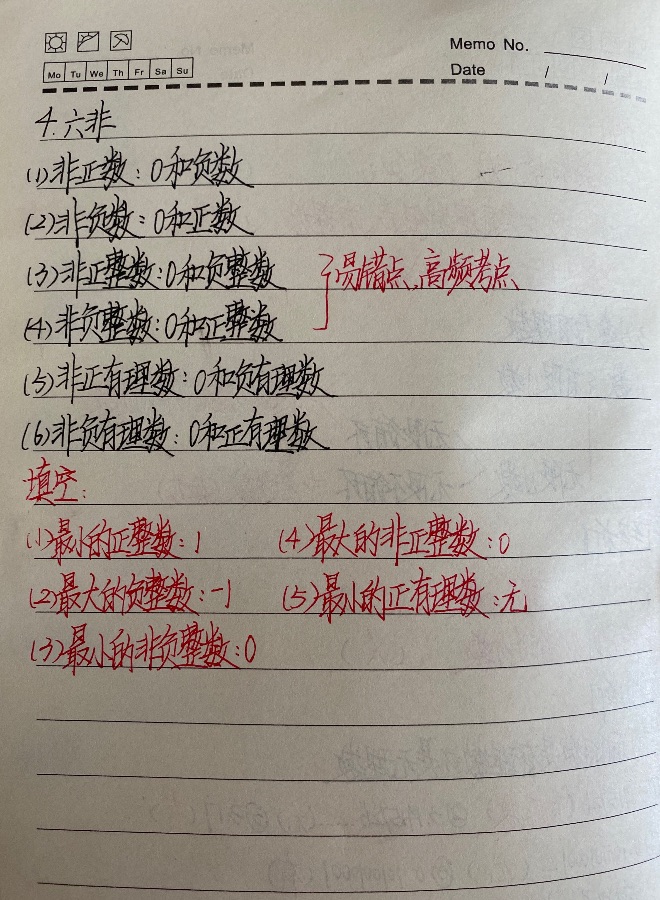 Memo No.
Mo Tu We Th Fr Sa Su
Date / /
4.六非
(1)非正数:0和负数
(2)非负数:0和正数
(3)非正整数:0和负整数
(4)非负整数:0和正整数
易错点、高频考点
(5)非正有理数:0和负有理数
(6)非负有理数:0和正有理数
填空:
(1)最小的正整数:1 (4)最大的非正整数:0
(2)最大的负整数:-1 (5)最小的正有理数:无
(3)最小的非负整数:0